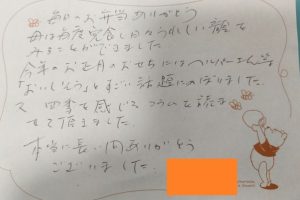 毎日のお弁当ありがとう
母は毎度完食し日々うれしい顔を
みることができました
今年のお正月のおせちにはヘルパーさん等
"おいしそう"とすごい話題にのぼりました
又 四季を感じる コラムを読ま
せて頂きました
本当に長い間ありがとう
ございました